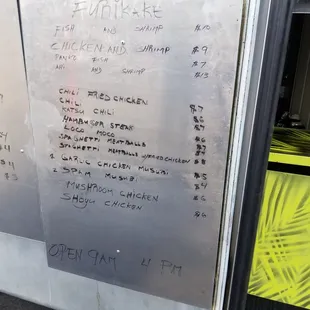 FURIKAKE
FISH AND SHRIMP $10
CHICKEN AND SHRIMP $9
FISH $7
AHI AND SHRIMP $13
CHILI FRIED CHICKEN
CHILI $7
KATSU CHILI $6
HAMBURGER STEAK $7
LOCO MOCO $6
SPAGHETTI MEATBALLS $6
SPAGHETTI MEATBALLS CHICKEN $8
1 GARLIC CHICKEN MUSUBI $3
2 SPAM MUSUBI $4
MUSHROOM CHICKEN $6
SHOYU CHICKEN $6
OPEN 9AM 4 PM